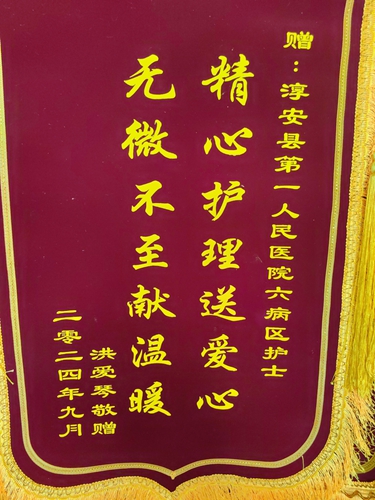 赠：淳安县第一人民医院六病区护士
精心护理送爱心
无微不至献温暖
洪爱琴敬赠
二零二四年九月